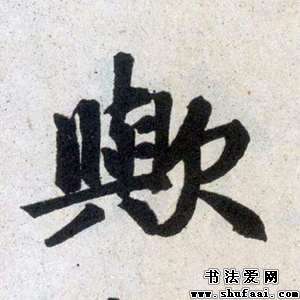 歟
书法爱网
www.shufaai.com